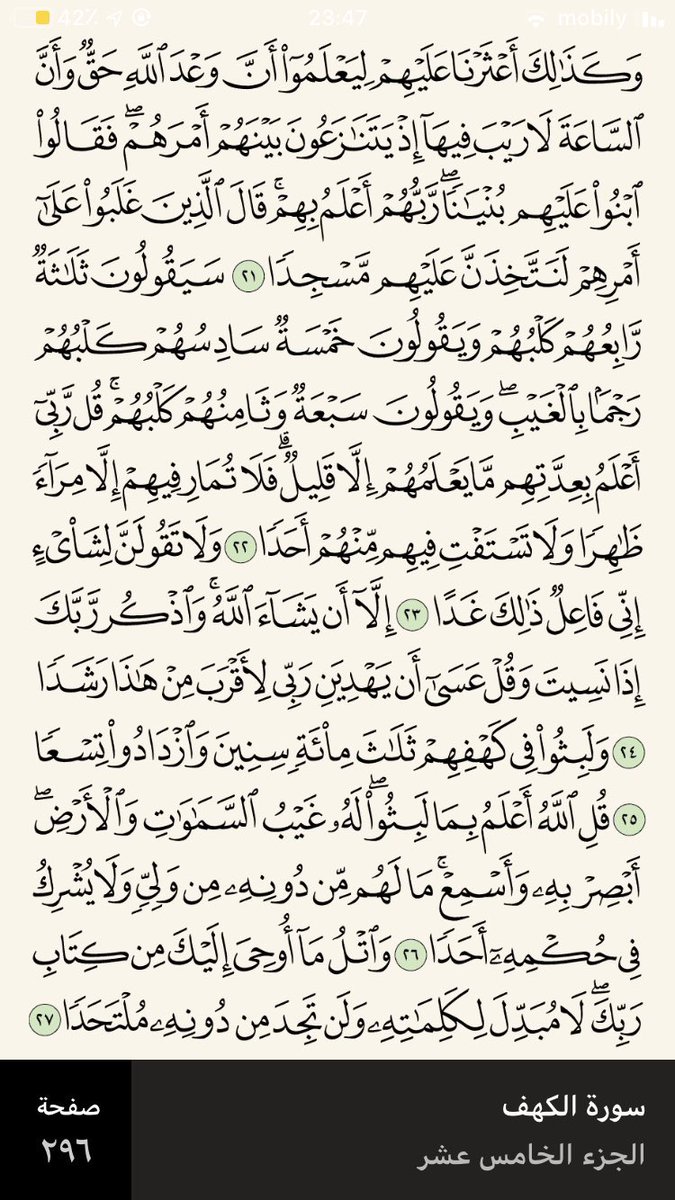 42٪ 23:47 mobily
وَكَذَٰلِكَ أَعْثَرْنَا عَلَيْهِمْ لِيَعْلَمُوٓا۟ أَنَّ وَعْدَ ٱللَّهِ حَقٌّ وَأَنَّ
ٱلسَّاعَةَ لَا رَيْبَ فِيهَآ إِذْ يَتَنَٰزَعُونَ بَيْنَهُمْ أَمْرَهُمْ ۖ فَقَالُوا۟
ٱبْنُوا۟ عَلَيْهِم بُنْيَٰنًا ۖ رَّبُّهُمْ أَعْلَمُ بِهِمْ ۚ قَالَ ٱلَّذِينَ غَلَبُوا۟ عَلَىٰٓ
أَمْرِهِمْ لَنَتَّخِذَنَّ عَلَيْهِم مَّسْجِدًا ٢١ سَيَقُولُونَ ثَلَٰثَةٌ
رَّابِعُهُمْ كَلْبُهُمْ وَيَقُولُونَ خَمْسَةٌ سَادِسُهُمْ كَلْبُهُمْ
رَجْمًۢا بِٱلْغَيْبِ ۖ وَيَقُولُونَ سَبْعَةٌ وَثَامِنُهُمْ كَلْبُهُمْ ۚ قُل رَّبِّىٓ
أَعْلَمُ بِعِدَّتِهِم مَّا يَعْلَمُهُمْ إِلَّا قَلِيلٌ ۗ فَلَا تُمَارِ فِيهِمْ إِلَّا مِرَآءً
ظَٰهِرًا وَلَا تَسْتَفْتِ فِيهِم مِّنْهُمْ أَحَدًا ٢٢ وَلَا تَقُولَنَّ لِشَا۟ىْءٍ
إِنِّى فَاعِلٌ ذَٰلِكَ غَدًا ٢٣ إِلَّآ أَن يَشَآءَ ٱللَّهُ ۚ وَٱذْكُر رَّبَّكَ
إِذَا نَسِيتَ وَقُلْ عَسَىٰٓ أَن يَهْدِيَنِ رَبِّى لِأَقْرَبَ مِنْ هَٰذَا رَشَدًا
٢٤ وَلَبِثُوا۟ فِى كَهْفِهِمْ ثَلَٰثَ مِا۟ئَةٍ سِنِينَ وَٱزْدَادُوا۟ تِسْعًا
٢٥ قُلِ ٱللَّهُ أَعْلَمُ بِمَا لَبِثُوا۟ ۖ لَهُۥ غَيْبُ ٱلسَّمَٰوَٰتِ وَٱلْأَرْضِ ۖ
أَبْصِرْ بِهِۦ وَأَسْمِعْ ۚ مَا لَهُم مِّن دُونِهِۦ مِن وَلِىٍّ وَلَا يُشْرِكُ
فِى حُكْمِهِۦٓ أَحَدًا ٢٦ وَٱتْلُ مَآ أُوحِىَ إِلَيْكَ مِن كِتَابِ
رَبِّكَ ۖ لَا مُبَدِّلَ لِكَلِمَٰتِهِۦ وَلَن تَجِدَ مِن دُونِهِۦ مُلْتَحَدًا ٢٧
سورة الكهف
الجزء الخامس عشر
صفحة
٢٩٦